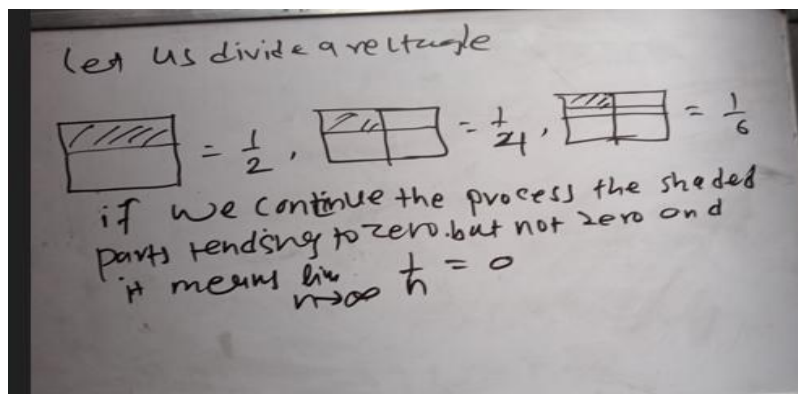 let us divide a rectangle
= 1/2 , = 1/4 , = 1/6
if we continue the process the shaded
parts tending to zero. but not zero and
it means lim n→∞ 1/n = 0